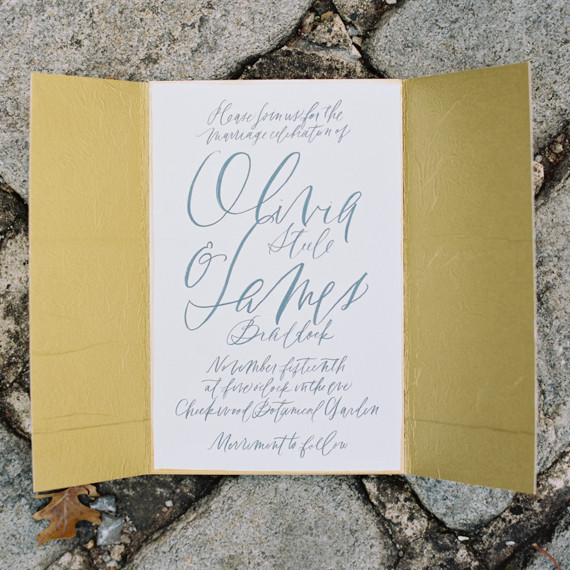 Please join us for the
marriage celebration of
Olivia
Steele
& James
Braddock
November fifteenth
at five o'clock in the eve
Cheekwood Botanical Garden
Merriment to follow